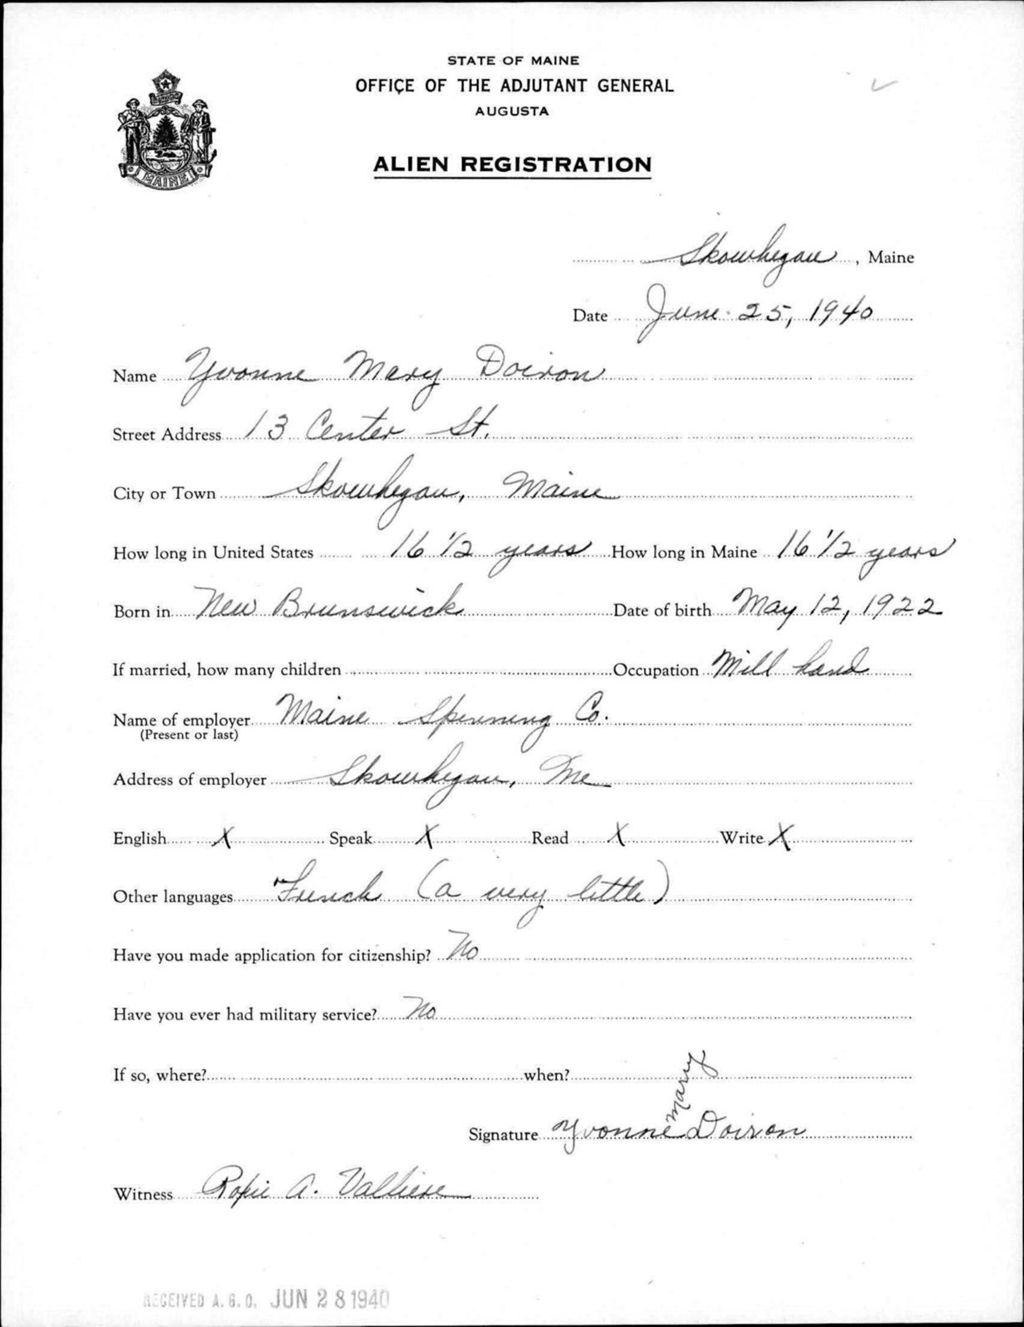 STATE OF MAINE
OFFICE OF THE ADJUTANT GENERAL
AUGUSTA
ALIEN REGISTRATION
MAINE
Skowhegan, Maine
Date June 25, 1940
Name Yvonne Mary Doiron
Street Address 13 Center St.
City or Town Skowhegan, Maine
How long in United States 16 1/2 years How long in Maine 16 1/2 years
Born in New Brunswick Date of birth May 12, 1922
If married, how many children Occupation Mill hand
Name of employer Maine Spinning Co.
(Present or last)
Address of employer Skowhegan, Me
English X Speak X Read X Write X
Other languages French (a very little)
Have you made application for citizenship? No
Have you ever had military service? No
If so, where? when?
Signature Yvonne Mary Doiron
Witness A. Valliere
RECEIVED A. G. O. JUN 28 1940